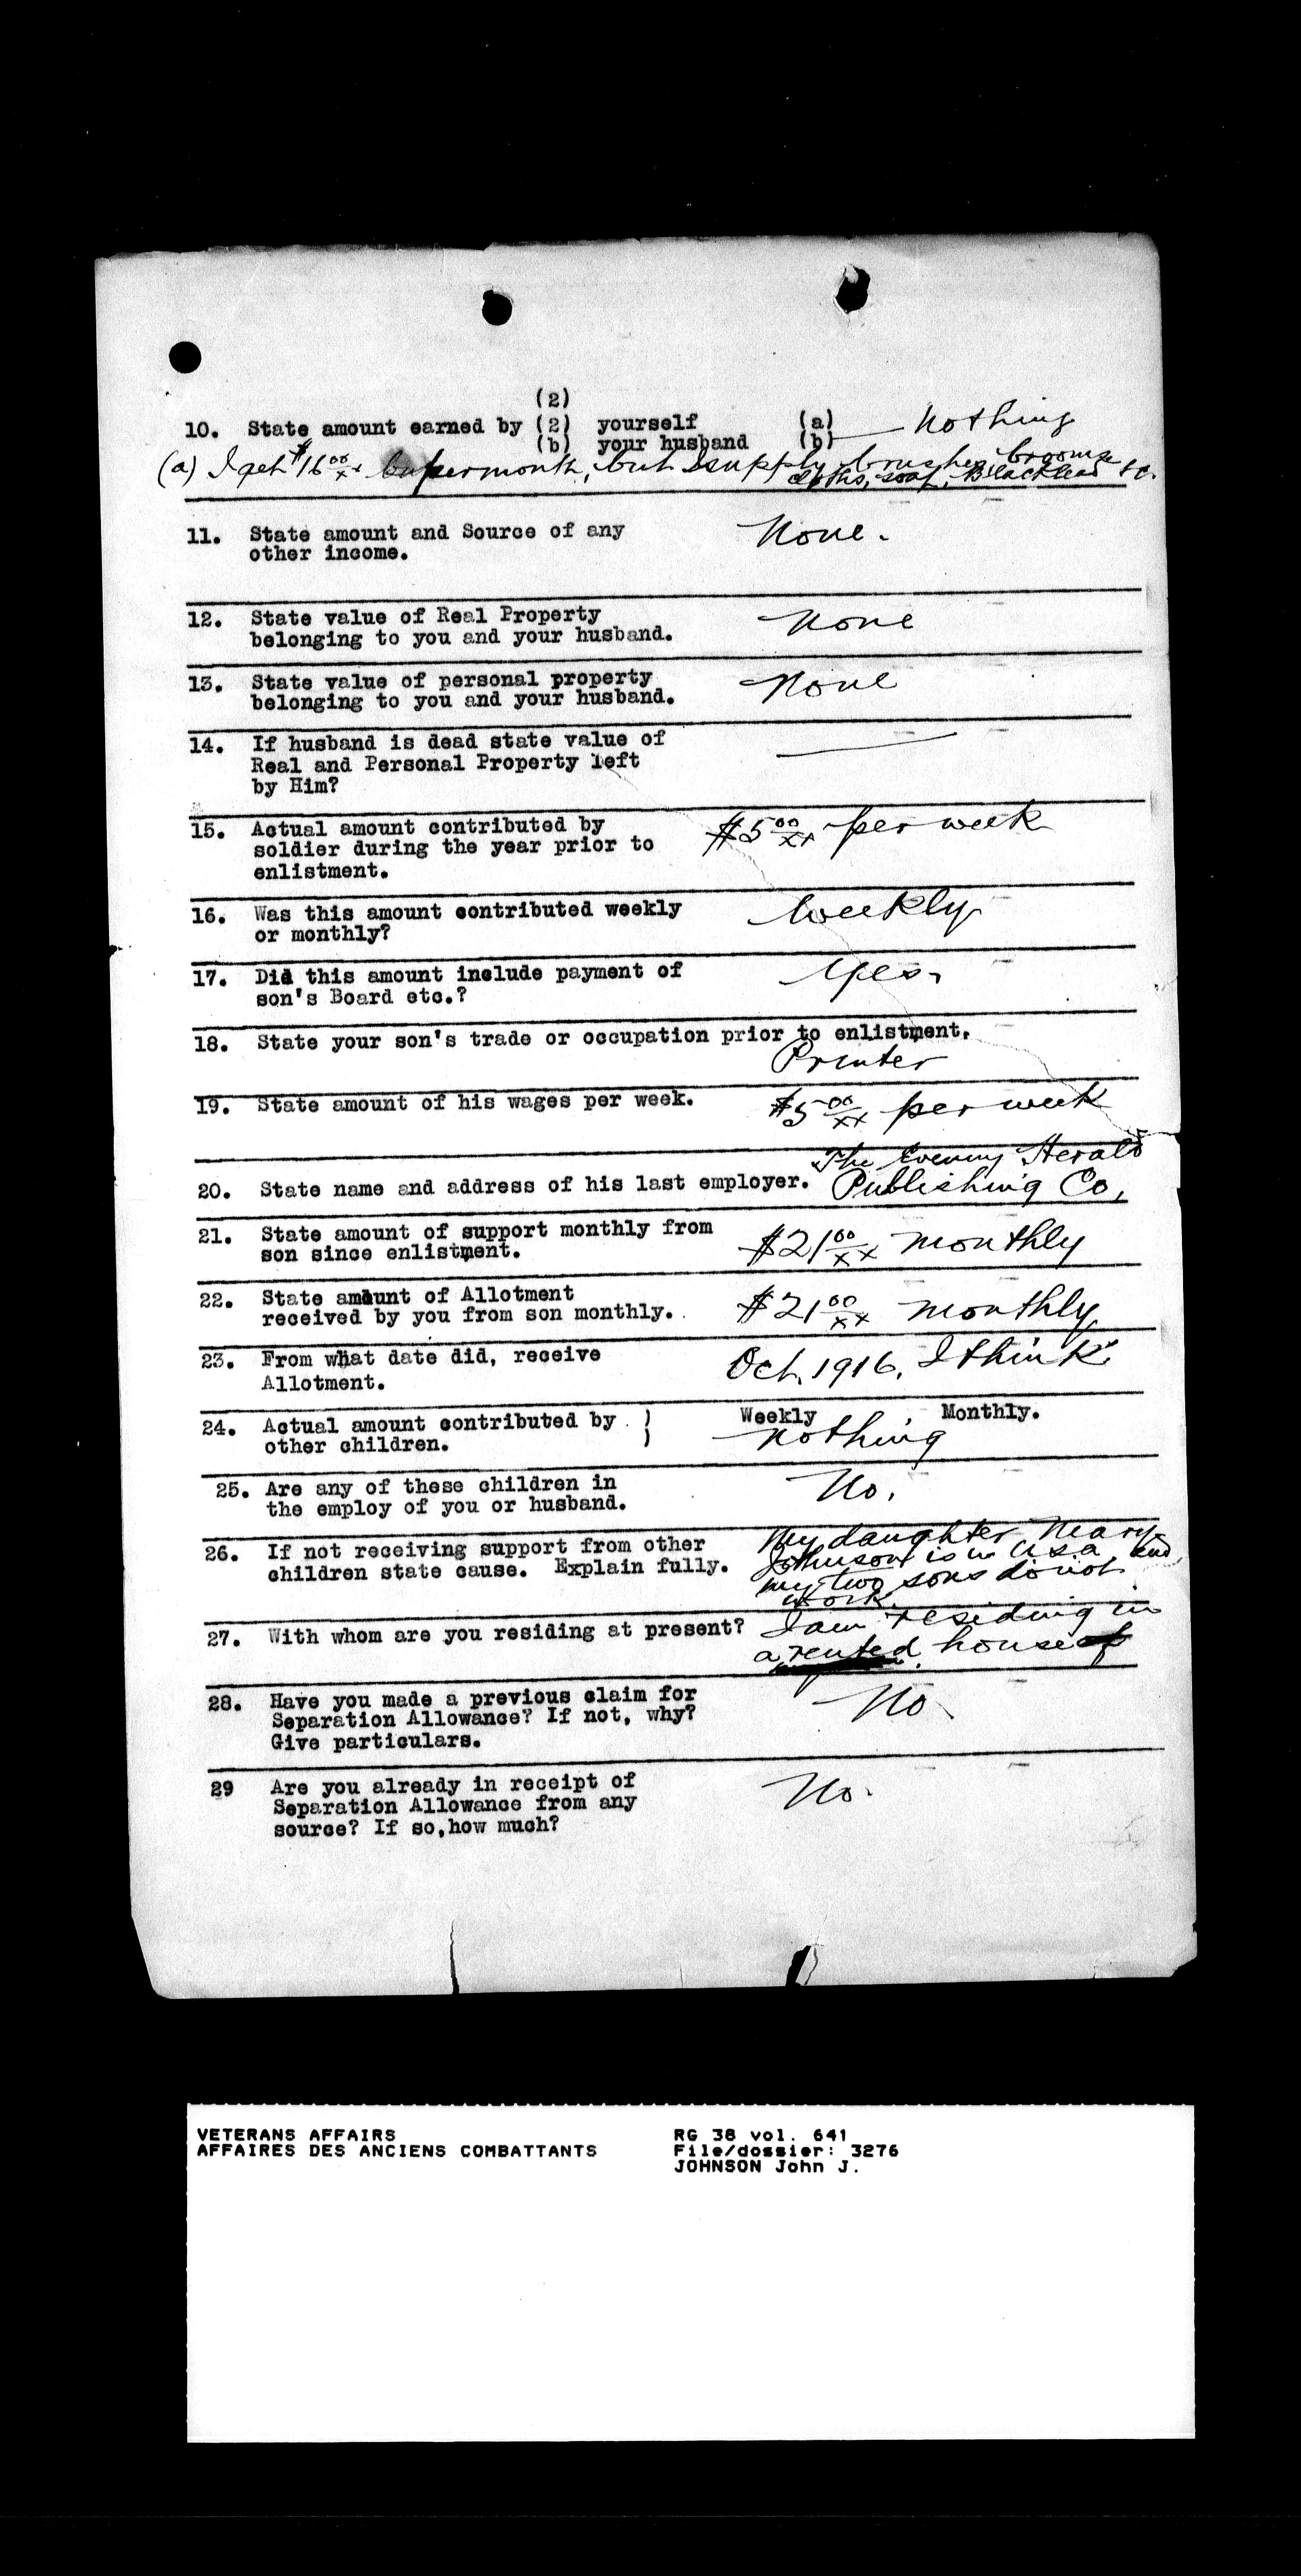 (2)
10. State amount earned by (2) yourself (a)
(b) your husband (b) Nothing
(a) I get $16 00/xx per month, but I supply brushes, brooms,
cloths, soap, Blacklead &c.
11. State amount and Source of any None.
other income.
12. State value of Real Property None
belonging to you and your husband.
13. State value of personal property None
belonging to you and your husband.
14. If husband is dead state value of
Real and Personal Property left
by Him?
15. Actual amount contributed by $5 00/xx per week
soldier during the year prior to
enlistment.
16. Was this amount contributed weekly Weekly
or monthly?
17. Did this amount include payment of Yes.
son's Board etc.?
18. State your son's trade or occupation prior to enlistment.
Printer
19. State amount of his wages per week. $5 00/xx per week
The Evening Herald
20. State name and address of his last employer. Publishing Co,
21. State amount of support monthly from $21 00/xx monthly
son since enlistment.
22. State amount of Allotment $21 00/xx monthly
received by you from son monthly.
23. From what date did, receive Oct. 1916. I think
Allotment.
24. Actual amount contributed by ) Weekly Monthly.
other children. ) Nothing
25. Are any of these children in No.
the employ of you or husband.
My daughter Mary
26. If not receiving support from other Johnson is in USA and
children state cause. Explain fully. my two sons do not
work.
27. With whom are you residing at present? I am residing in
a rented house
28. Have you made a previous claim for No
Separation Allowance? If not, why?
Give particulars.
29 Are you already in receipt of No.
Separation Allowance from any
source? If so,how much?
VETERANS AFFAIRS RG 38 vol. 641
AFFAIRES DES ANCIENS COMBATTANTS File/dossier: 3276
JOHNSON John J.